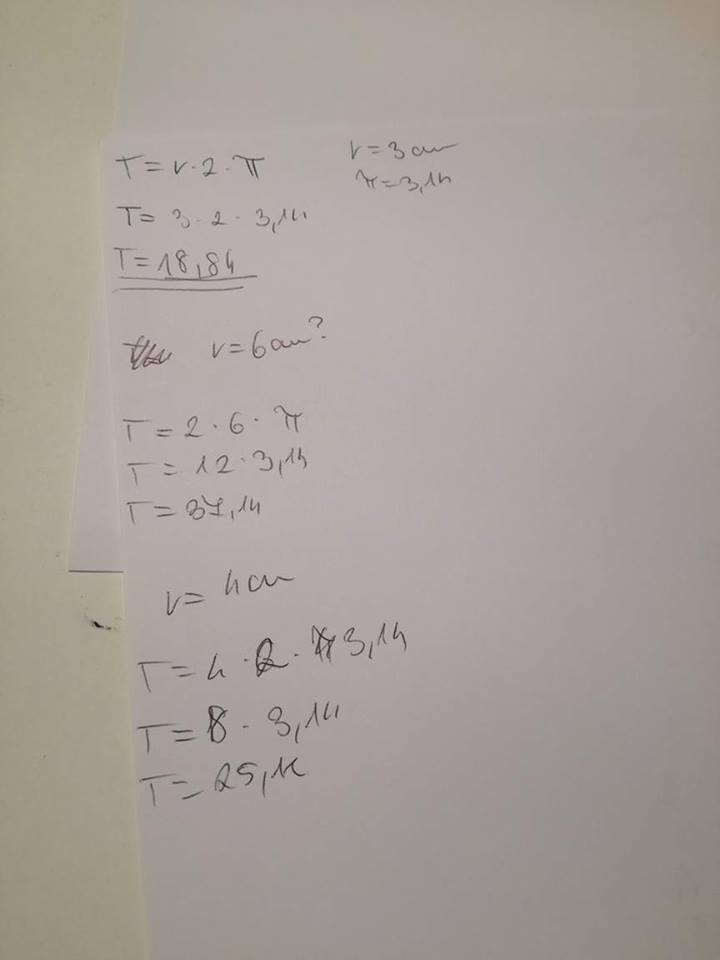 T = r · 2 · π r = 3 cm
π = 3,14
T = 3 · 2 · 3,14
T = 18,84
r = 6 cm?
T = 2 · 6 · π
T = 12 · 3,14
T = 37,14
r = 4 cm
T = 4 · 2 · 3,14
T = 8 · 3,14
T = 25,1